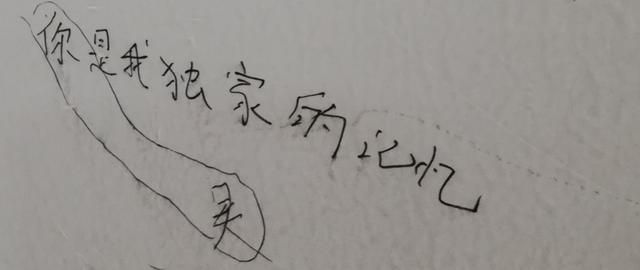 你是我独家的记忆
吴